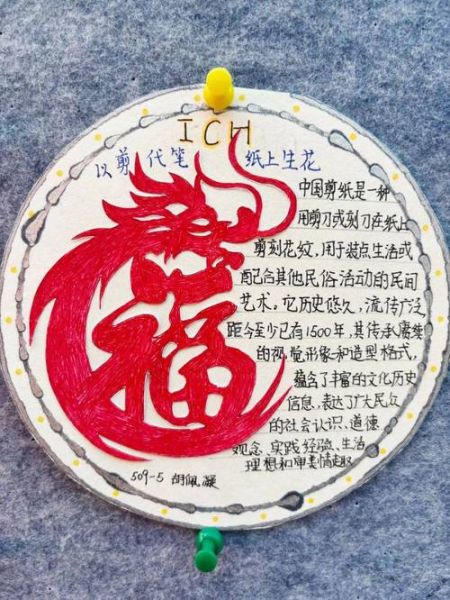 ICH
以剪代笔 纸上生花
中国剪纸是一种
用剪刀或刻刀在纸上
剪刻花纹，用于装点生活或
配合其他民俗活动的民间
艺术。它历史悠久，流传广泛，
距今至少已有1500年，其传承赓续
的视觉形象和造型格式，
蕴含了丰富的文化历史
信息，表达了广大民众
的社会认识、道德
观念、实践经验、生活
理想和审美情趣
福
509-5 胡佩凝